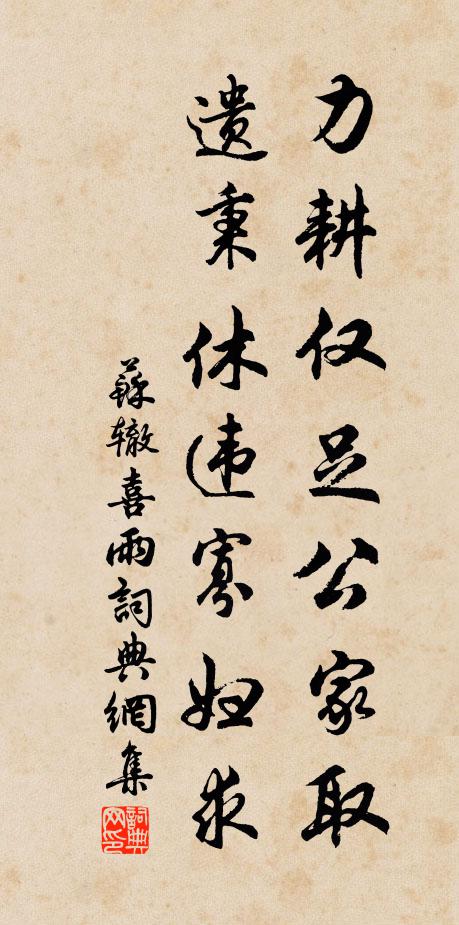 力耕仅足公家取
遗秉休违寡妇求
蘇辙喜雨詞典網集
詞典
网印